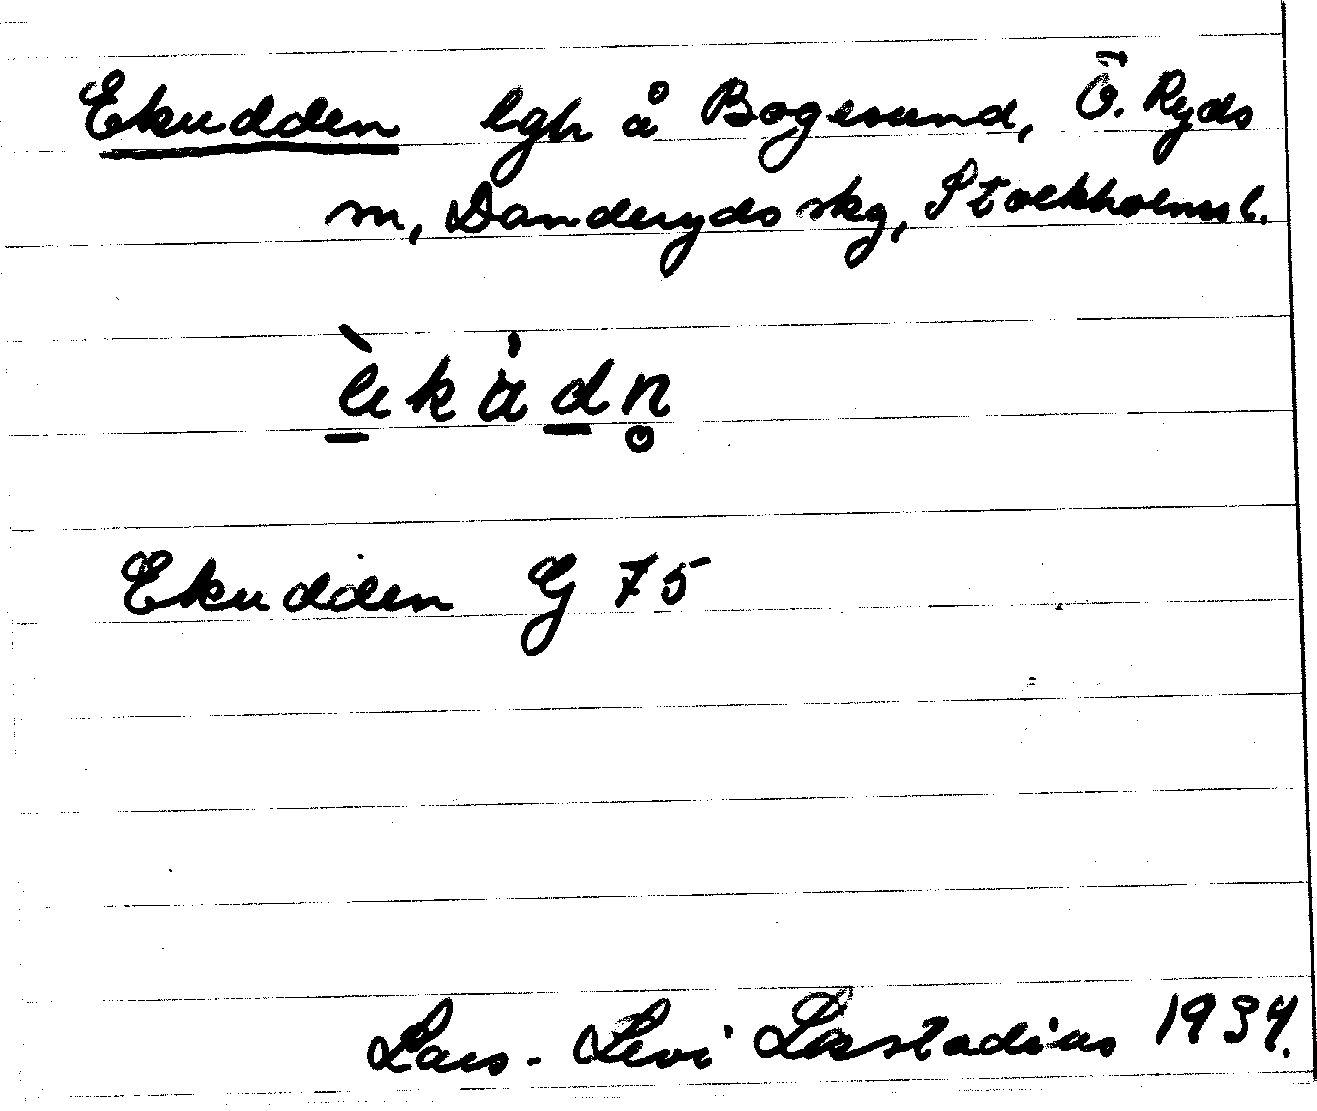 Ekudden lgh å Bogesund, Ö. Ryds
sn, Danderyds skg, Stockholms l.
èkȧdn̥
Ekudden G 75
Lars-Levi Læstadius 1934.